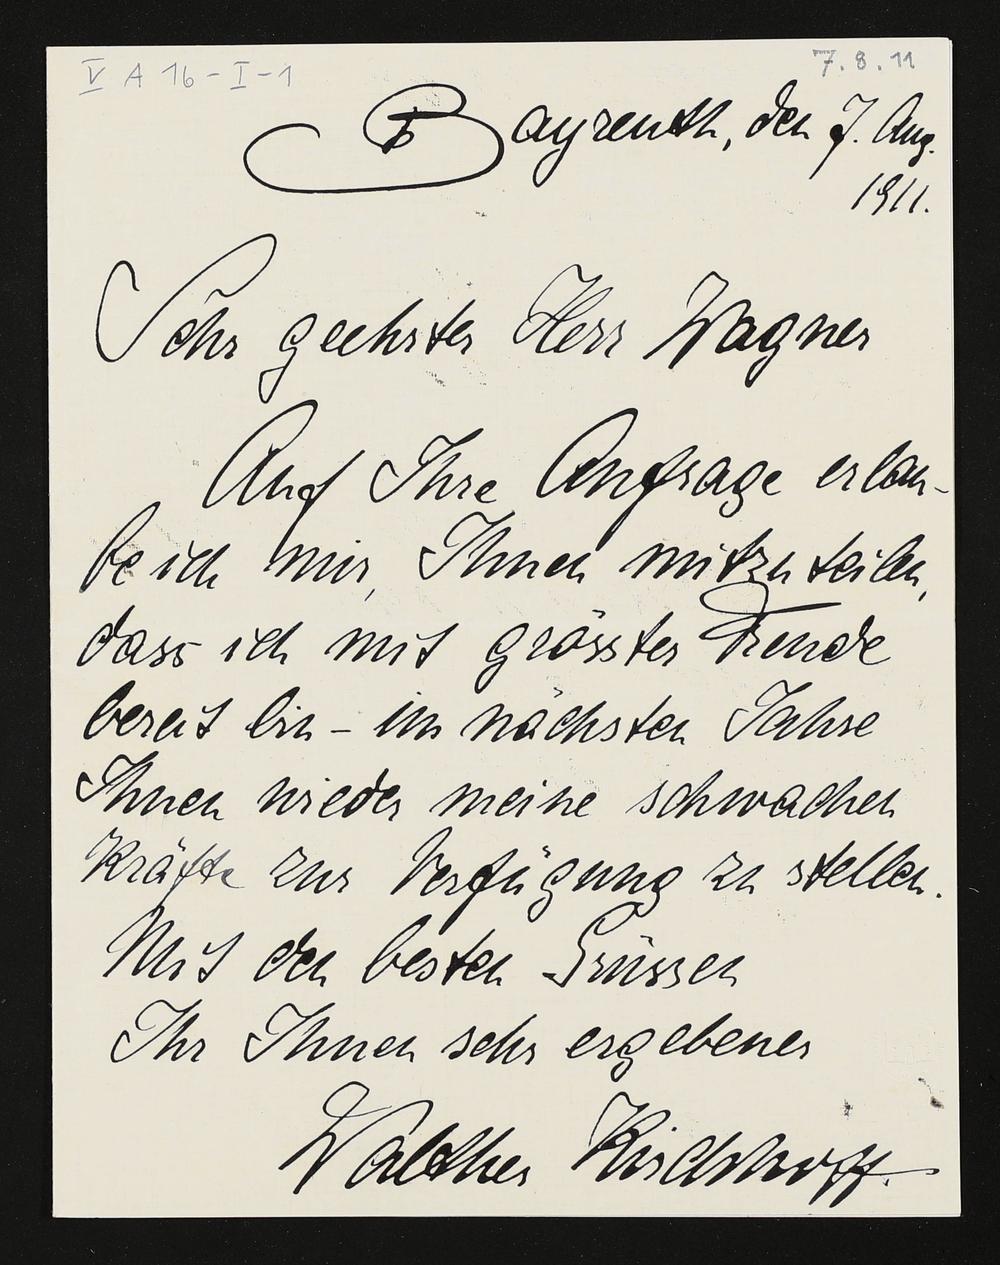 V A 16-I-1
7.8.11
Bayreuth, den 7. Aug.
1911.
Sehr geehrter Herr Wagner
Auf Ihre Anfrage erlau-
be ich mir, Ihnen mitzuteilen,
dass ich mit grösster Freude
bereit bin - im nächsten Jahre
Ihnen wieder meine schwachen
Kräfte zur Verfügung zu stellen.
Mit den besten Grüssen
Ihr Ihnen sehr ergebener
Walther Kirchhoff.